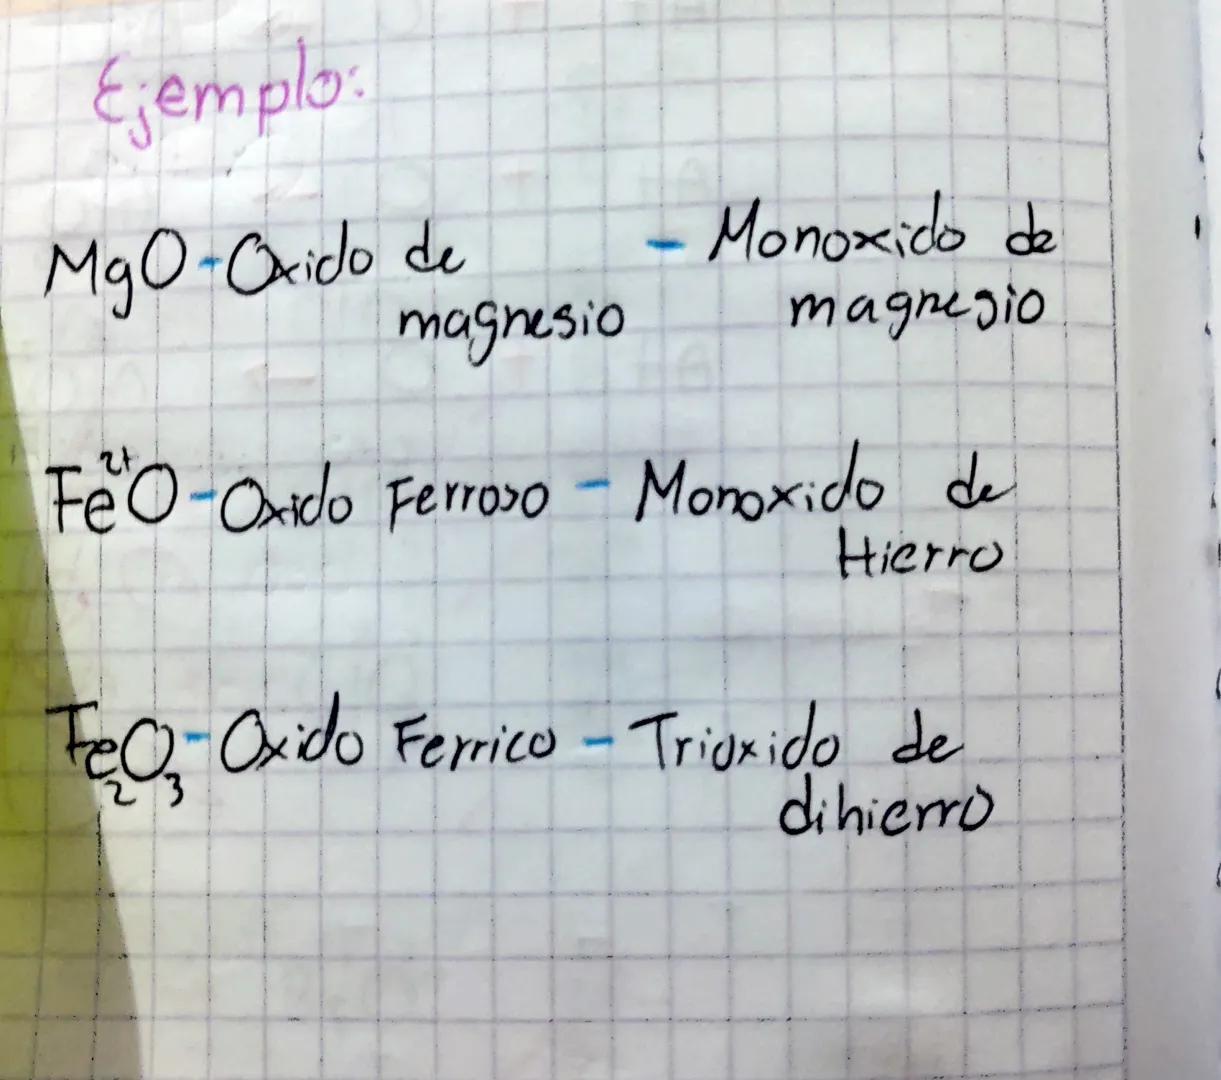 Ejemplo:
MgO - Oxido de - Monoxido de
magnesio magnesio
Fe²⁺O - Oxido Ferroso - Monoxido de
Hierro
Fe₂O₃ - Oxido Ferrico - Trioxido de
dihierro